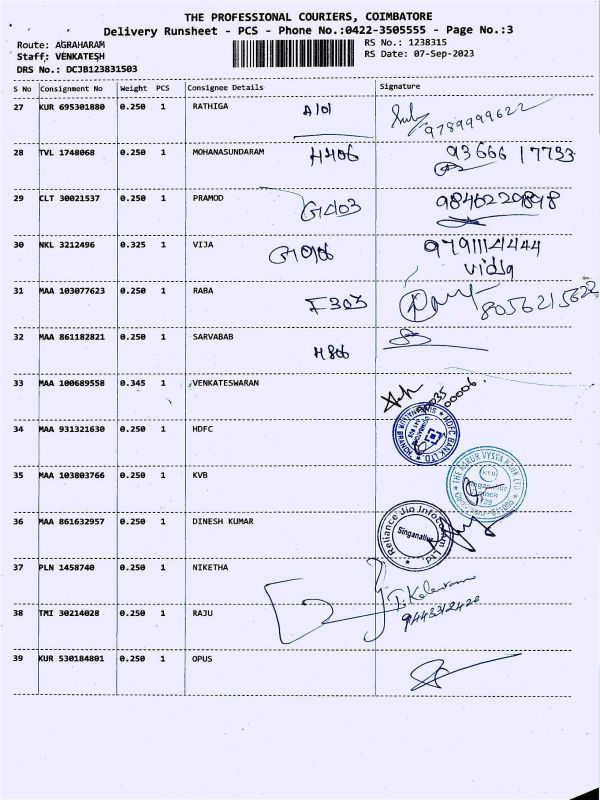 THE PROFESSIONAL COURIERS, COIMBATORE
Delivery Runsheet - PCS - Phone No.:0422-3505555 - Page No.:3
Route: AGRAHARAM RS No.: 1238315
Staff: VENKATESH RS Date: 07-Sep-2023
DRS No.: DCJB123831503
S No Consignment No Weight PCS Consignee Details Signature
27 KUR 695301880 0.250 1 RATHIGA A101
9789999622
28 TVL 1748068 0.250 1 MOHANASUNDARAM H406 93666 17793
29 CLT 30021537 0.250 1 PRAMOD G403
30 NKL 3212496 0.325 1 VIJA 9791114444
vidya
31 MAA 103077623 0.250 1 RABA F303 8056215622
32 MAA 861182821 0.250 1 SARVABAB H806
33 MAA 100689558 0.345 1 VENKATESWARAN
34 MAA 931321630 0.250 1 HDFC
HDFC BANK LTD.
35 MAA 103803766 0.250 1 KVB
THE KARUR VYSYA BANK LTD
KVB
36 MAA 861632957 0.250 1 DINESH KUMAR
Reliance Jio Infocomm Ltd.
Singanallur
37 PLN 1458740 0.250 1 NIKETHA
38 TMI 30214028 0.250 1 RAJU
39 KUR 530184801 0.250 1 OPUS